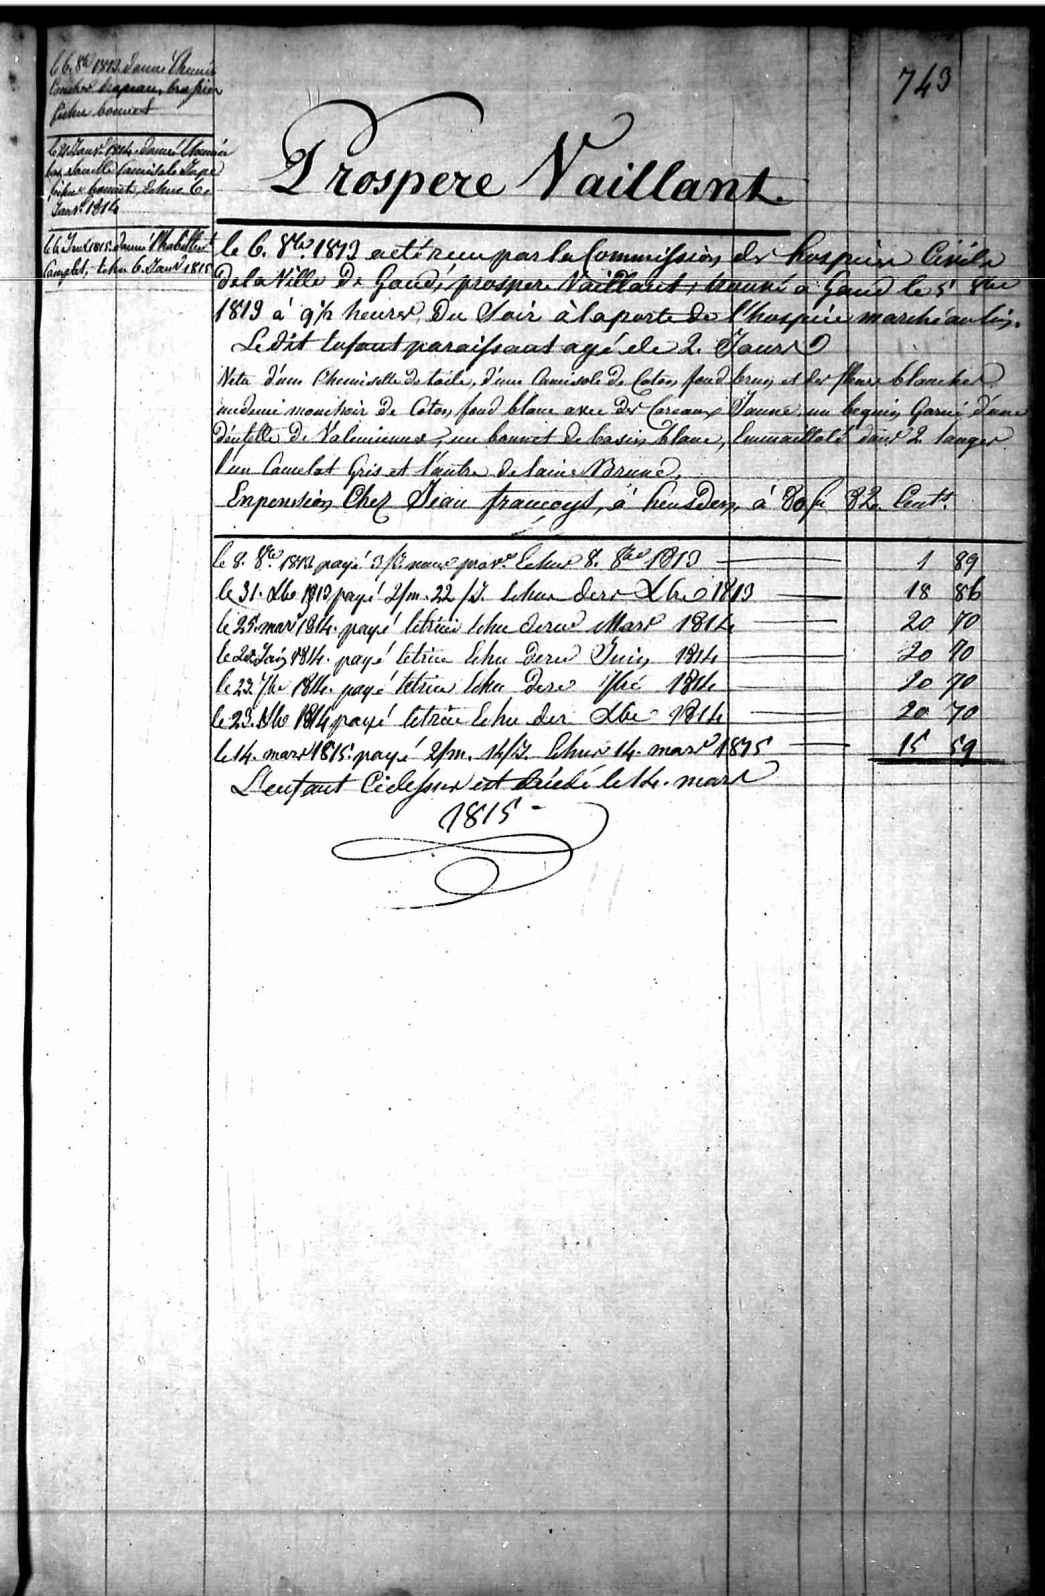 743
le 6. 8bre 1813 donné Chemise
bonnet
le 21 Janvr 1814 donné Chemise
bas, camisole Jupe
fichu bonnet, Echu 6.
Janvr 1814
le 6 Janv 1815 donné l'habillemt
Complet, Echu 6 Janvr 1815
Prospere Vaillant
le 6. 8bre 1813 a été reçu par la Commission des hospices Civils
de la Ville De Gand, prospere Vaillant, trouvé a Gand le 5 8bre
1813 à 9 1/2 heures, Du Soir à la porte de l'hospice marché au lin.
Le dit Enfant paraissant agé de 2. Jours
Vetu d'une Chemisette de toile, d'une Camisole de Coton fond brun et des fleurs blanches
un demi mouchoir de Coton fond blanc avec des Careaux Jaune, un beguin Garni d'une
déntelle De Valencienne, un bonnet de basin blanc, Emmailloté dans 2 langes
l'un Camelot Gris et l'autre de laine Brune,
En pension Chez Jean françoys, à heusden, à 80 fr 82 Cents.
le 8. 8bre 1813 payé Echus 8. 8bre 1813 1 89
le 31. Xbre 1813 payé 2/m. 22/J. Echus der Xbre 1813 18 86
le 25. mars 1814. payé letrim Echu dernr Mars 1814 20 70
le 22 Juin 1814. payé letrim Echu dernr Juin 1814 20 70
le 23. 7bre 1814. payé letrim Echu dernr 7bre 1814 20 70
le 23. Xbre 1814 payé letrim Echu der Xbre 1814 20 70
le 14. mars 1815. payé 2/m. 14/J. Echus 14. mars 1815 15 59
L'enfant Cidessus est décédé le 14. mars
1815